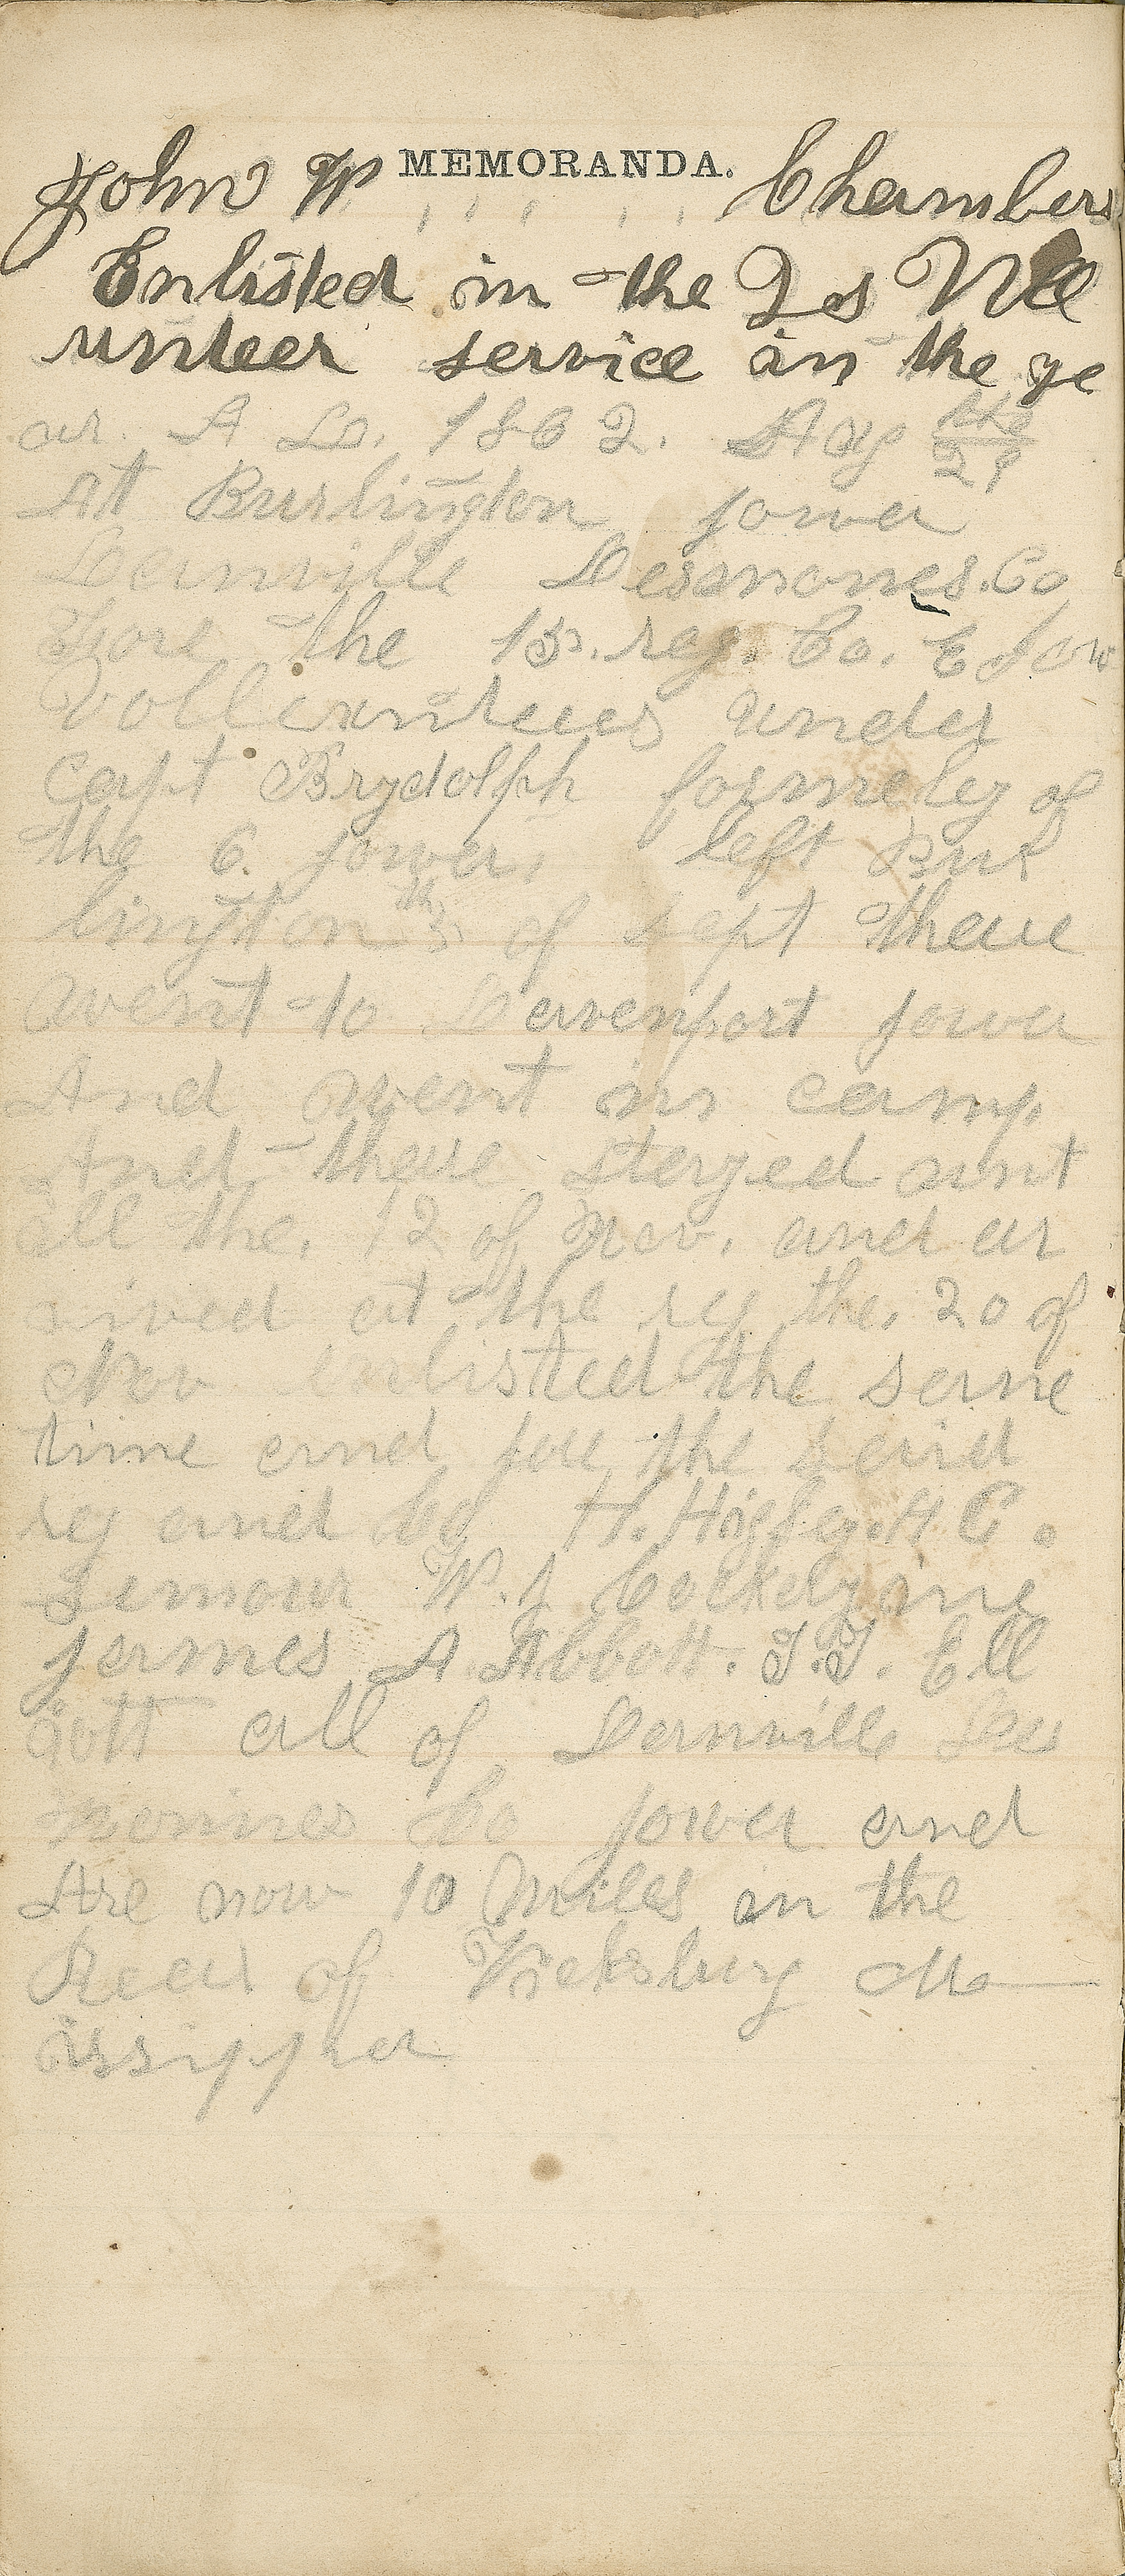 MEMORANDA.
John W Chambers
Enlisted in the
unteer service in the ye
ar. A D. 1862. Aug the 29
At Burlington Iowa
Danville Desmones. Co
Fore the 15. reg. Co. E Iow
Vollenteers under
Capt Brydolph formeley of
the 6. Iowa, left Bur
lington th 3 of Sept there
went to Davenport Iowa
And went in camp
And there stayed unt
ill the. 12 of Nov. and ar
rived at the reg the. 20 of
Nov Enlisted the same
time and for the said
reg and Co H. H. C.
W. J.
James A Abbott. T. T. Ell
gott all of Danville Des
moines Co Iowa and
Are now 10 Miles in the
Rear of Vicksburg Me